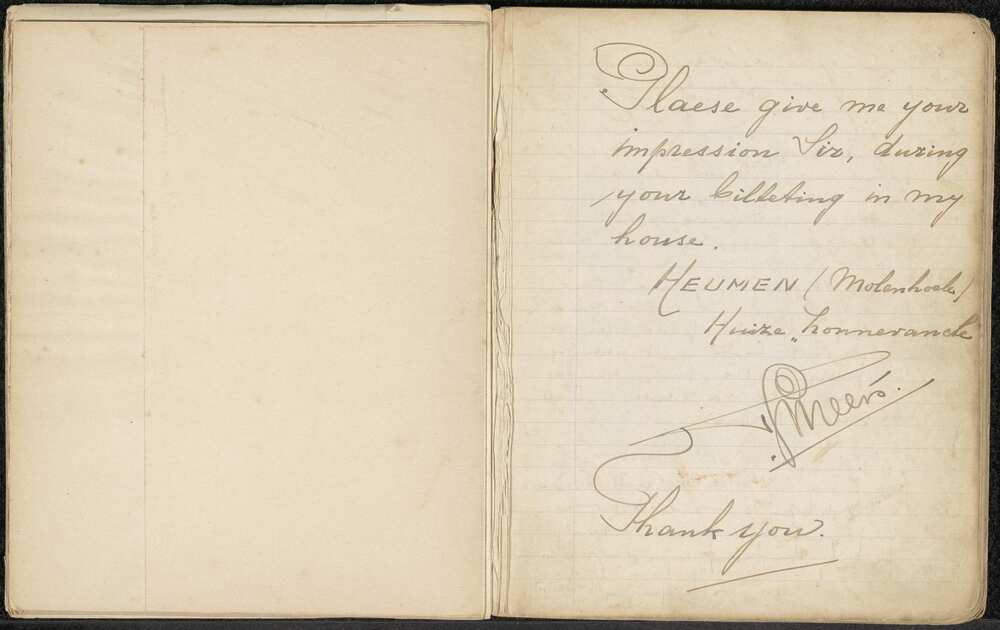 Plaese give me your
impression Sir, during
your billeting in my
house.
HEUMEN (Molenhoek)
Huize „Zonneranck
Thank you.